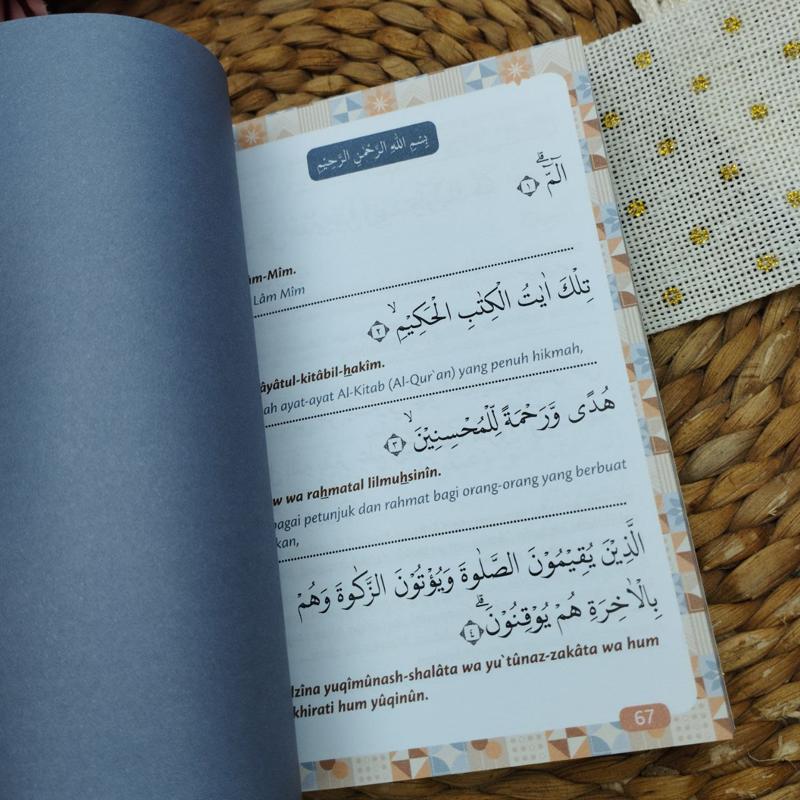 بِسْمِ اللّٰهِ الرَّحْمٰنِ الرَّحِيْمِ
الۤمّۤ ۗ ١
Mîm.
Lâm Mîm
تِلْكَ اٰيٰتُ الْكِتٰبِ الْحَكِيْمِۙ ٢
kitâbil-hakîm.
ayat-ayat Al-Kitab (Al-Qur`an) yang penuh hikmah,
هُدًى وَّرَحْمَةً لِّلْمُحْسِنِيْنَۙ ٣
wa rahmatal lilmuhsinîn.
petunjuk dan rahmat bagi orang-orang yang berbuat
الَّذِيْنَ يُقِيْمُوْنَ الصَّلٰوةَ وَيُؤْتُوْنَ الزَّكٰوةَ وَهُمْ
بِالْاٰخِرَةِ هُمْ يُوْقِنُوْنَۗ ٤
yuqîmûnash-shalâta wa yu`tûnaz-zakâta wa hum
hum yûqinûn.
67